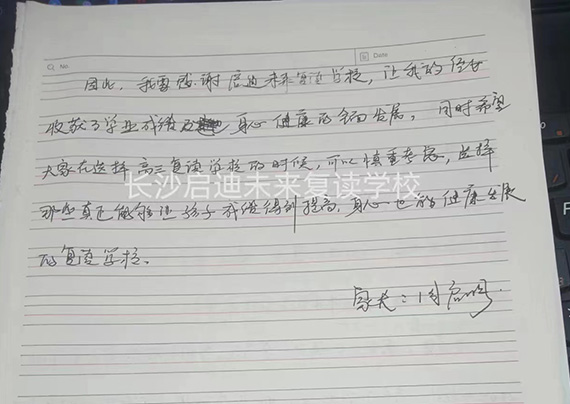 No.
Date
因此，我要感谢启迪未来复读学校，让我的侄女
收获了学业成绩及身心健康的全面发展，同时希望
大家在选择高三复读学校的时候，可以慎重考虑，选择
长沙启迪未来复读学校
那些真正能够让孩子成绩得到提高，身心也能健康发展
的复读学校。
家长：周启明